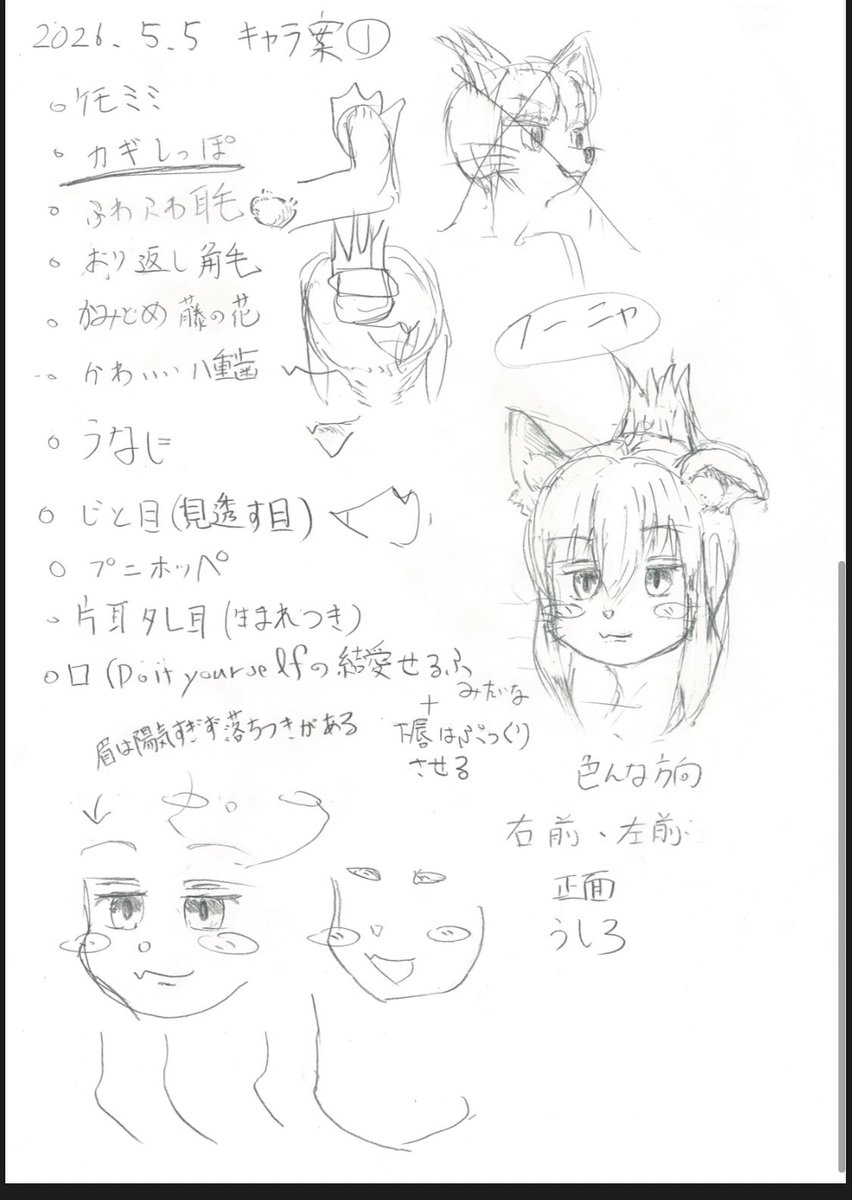 2026.5.5 キャラ案①
ケモミミ
カギしっぽ
ふわふわ耳毛
おり返し角毛
かみどめ 藤の花
かわいい八重歯
うなじ
じと目(見透す目)
プニホッペ
片耳タレ耳(生まれつき)
口(Do it yourselfの結愛せるふ
みたいな
+
下唇はぷっくり
させる
眉は陽気すぎず落ちつきがある
イーニャ
色んな方向
右前、左前
正面
うしろ